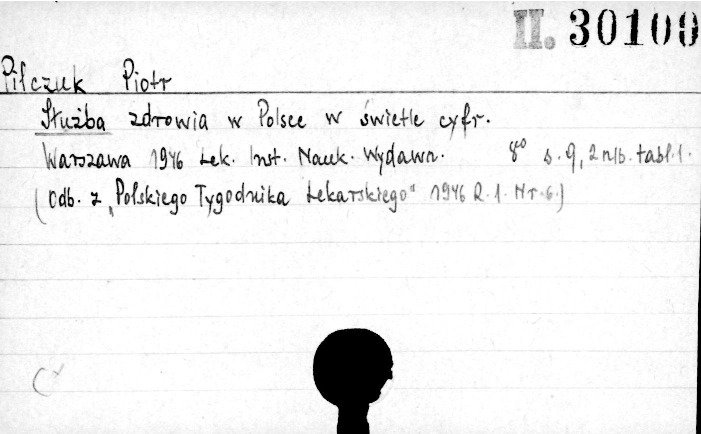 II. 30109
Pilczuk Piotr
Służba zdrowia w Polsce w świetle cyfr.
Warszawa 1946 Lek. Inst. Nauk. Wydawn. 8° s. 9, 2 nlb. tabl. 1.
(Odb. z „Polskiego Tygodnika Lekarskiego" 1946 R. 1. Nr. 6.)